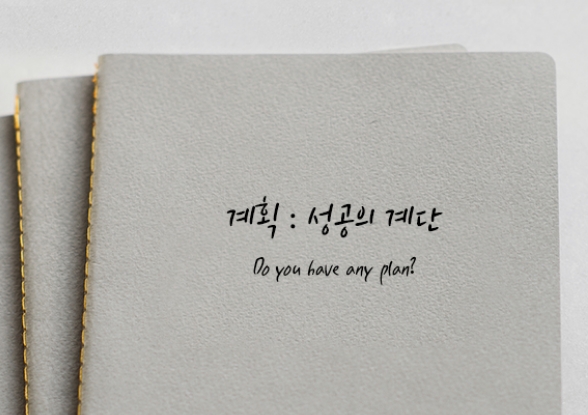 계획 : 성공의 계단
Do you have any plan?